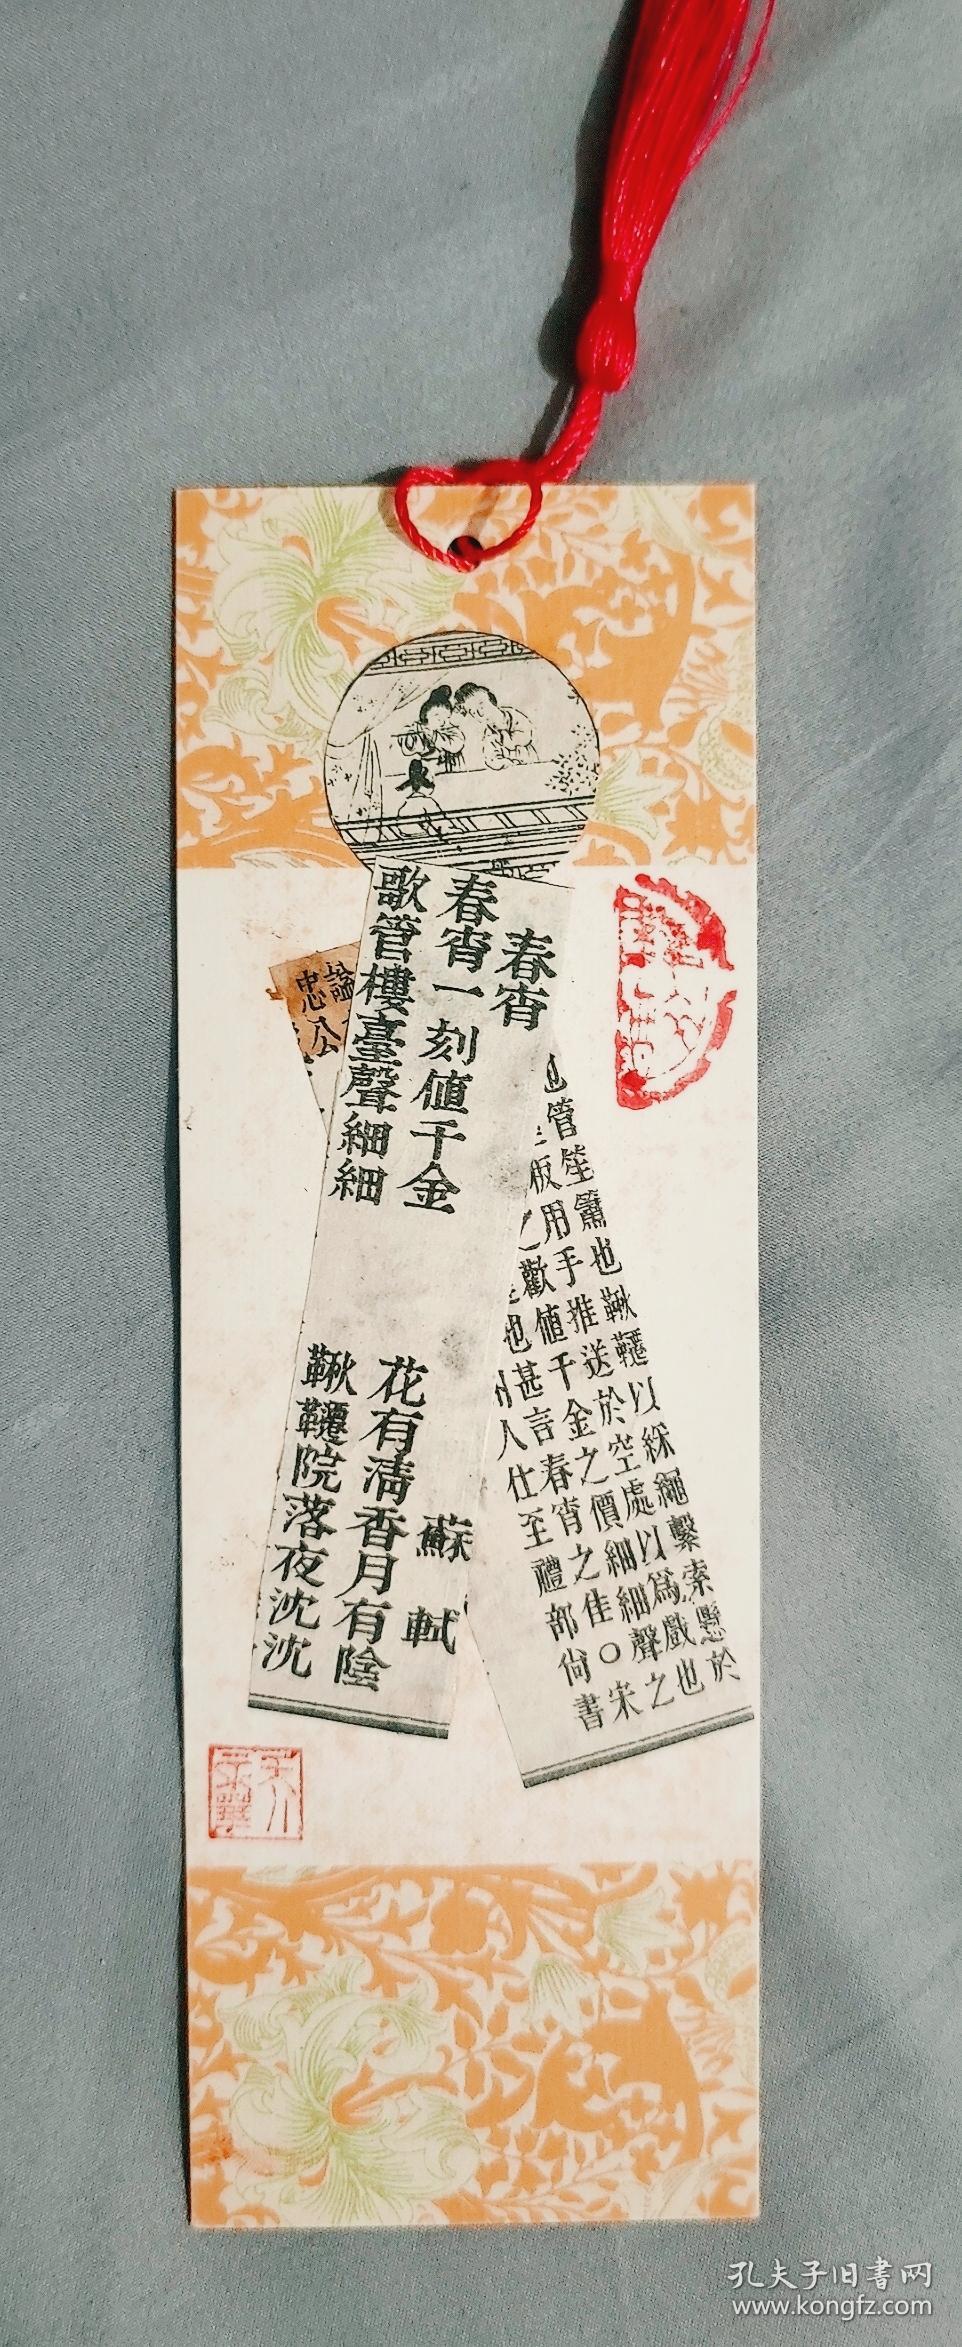 春宵
蘇軾
春宵一刻值千金
花有清香月有陰
歌管樓臺聲細細
鞦韆院落夜沈沈
於
鞦韆以綵繩繫索懸
管笙簫也
用手推送於空處以爲戲也
歡值千金之價細細聲之
也甚言春宵之佳○宋
人仕至禮部尙書
諡
忠公
孔夫子旧书网
www.kongfz.com